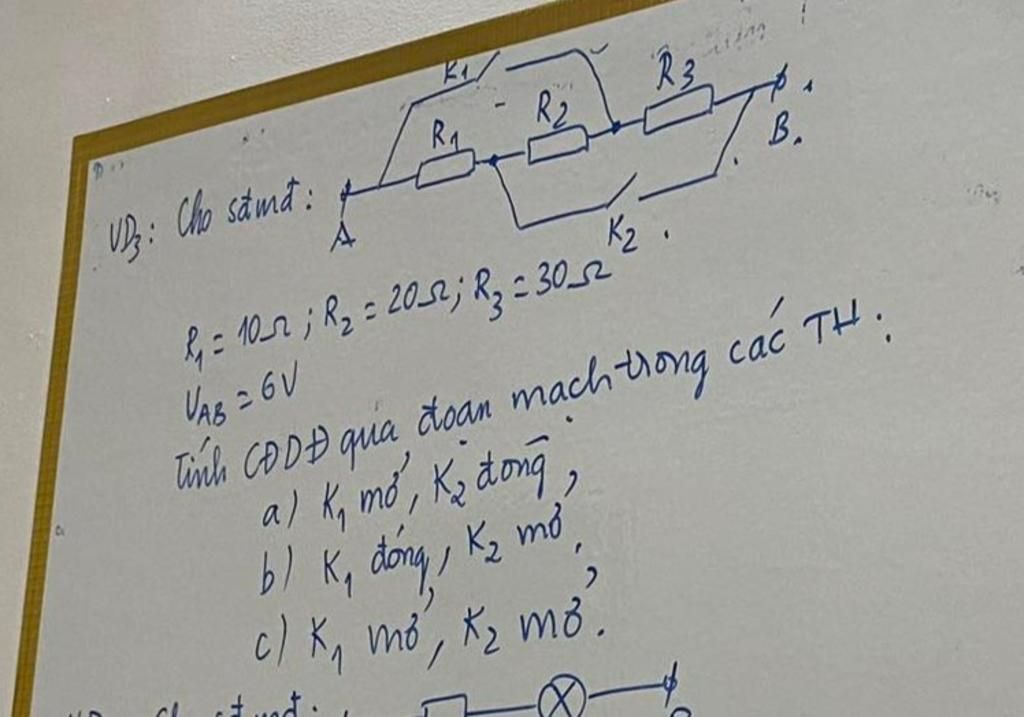 K1
R1
R2
R3
B.
VD3: Cho sđmđ:
A
K2
R1 = 10Ω; R2 = 20Ω; R3 = 30Ω
UAB = 6V
Tính CĐDĐ qua đoạn mạch trong các TH:
a) K1 mở, K2 đóng,
b) K1 đóng, K2 mở,
c) K1 mở, K2 mở.